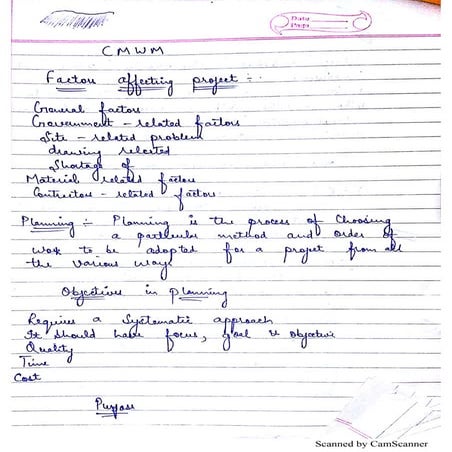 Date
Page
CMWM
Factors affecting project :-
General factors
Government - related factors
Site - related problem
drawing related
Shortage of
Material related factors
Contractors - related factors
Planning :- Planning is the process of Choosing
a particular method and order of
work to be adopted for a project from all
the various ways
Objectives in planning
Requires a Systematic approach
It should have focus, goal & objective
Quality
Time
Cost
Purpose
Scanned by CamScanner